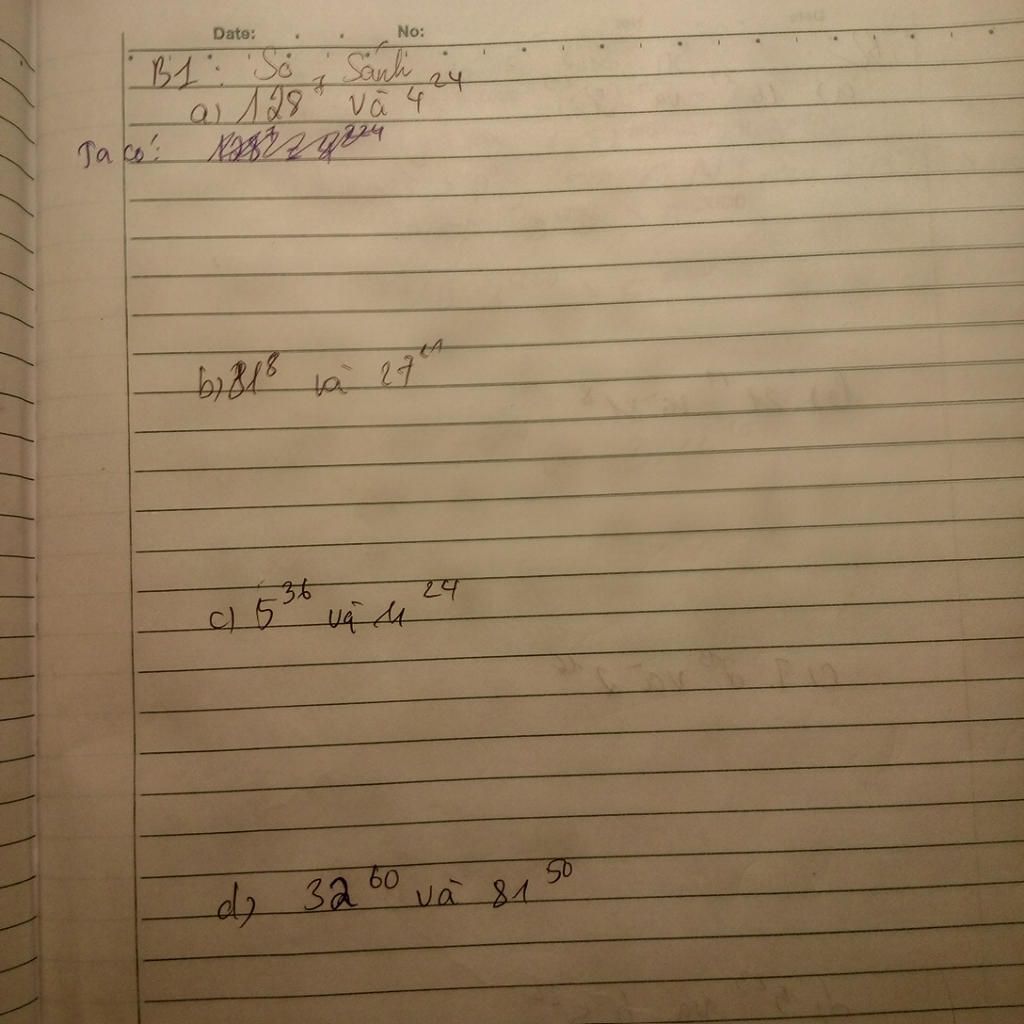 Date: No:
B1: So Sánh
a) 128⁷ và 4²⁴
Ta có:
b) 81⁸ và 27¹¹
c) 5³⁶ và 11²⁴
d) 32⁶⁰ và 81⁵⁰